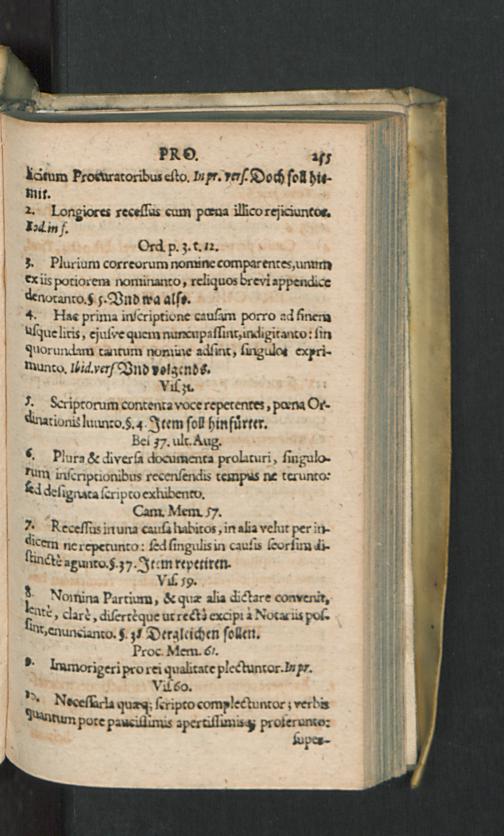 PRO. 255
licitum Procuratoribus esto. In pr. vers. Doch soll hie-
mit.
2. Longiores recessus cum pœna illico rejiciuntor.
Eod. in f.
Ord. p. 3. t. 12.
3. Plurium correorum nomine comparentes, unum
ex iis potiorem nominanto, reliquos brevi appendice
denotanto. §. 5. Und wa also.
4. Hac prima inscriptione causam porro ad finem
usque litis, ejusve quem nuncupassint, indigitanto: sin
quorundam tantum nomine adsint, singulos expri-
munto. Ibid. vers. Und volgends.
Vis. 31.
5. Scriptorum contenta voce repetentes, pœna Or-
dinationis luunto. §. 4. Item soll hinfürter.
Bei 37. ult. Aug.
6. Plura & diversa documenta prolaturi, singulo-
rum inscriptionibus recensendis tempus ne terunto:
sed designata scripto exhibento.
Cam. Mem. 57.
7. Recessus in una causa habitos, in alia velut per in-
dicem ne repetunto: sed singulis in causis seorsim di-
stinctè agunto. §. 37. Item repetiren.
Vis. 59.
8. Nomina Partium, & quæ alia dictare convenit,
lentè, clarè, disertèque ut rectà excipi à Notariis pos-
sint, enuncianto. §. 38 Dergleichen sollen.
Proc. Mem. 61.
9. Immorigeri pro rei qualitate plectuntor. In pr.
Vis. 60.
10. Necessaria quæq; scripto complectuntor; verbis
quantum pote paucissimis apertissimisq; proferunto:
super-